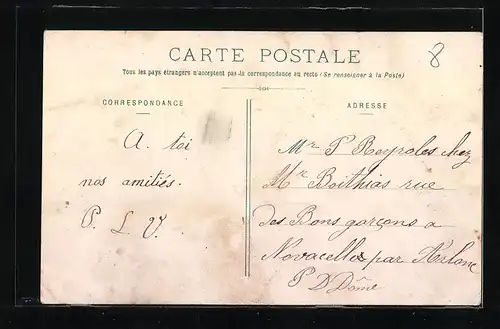 CARTE POSTALE
Tous les pays étrangers n'acceptent pas la correspondance au recto (Se renseigner à la Poste)
8
CORRESPONDANCE
ADRESSE
A toi
nos amitiés.
P. L. V.
Mr P Reyroles chez
Mr Boithias rue
des Bons garçons a
Novacelles par Arlanc
P D Dôme